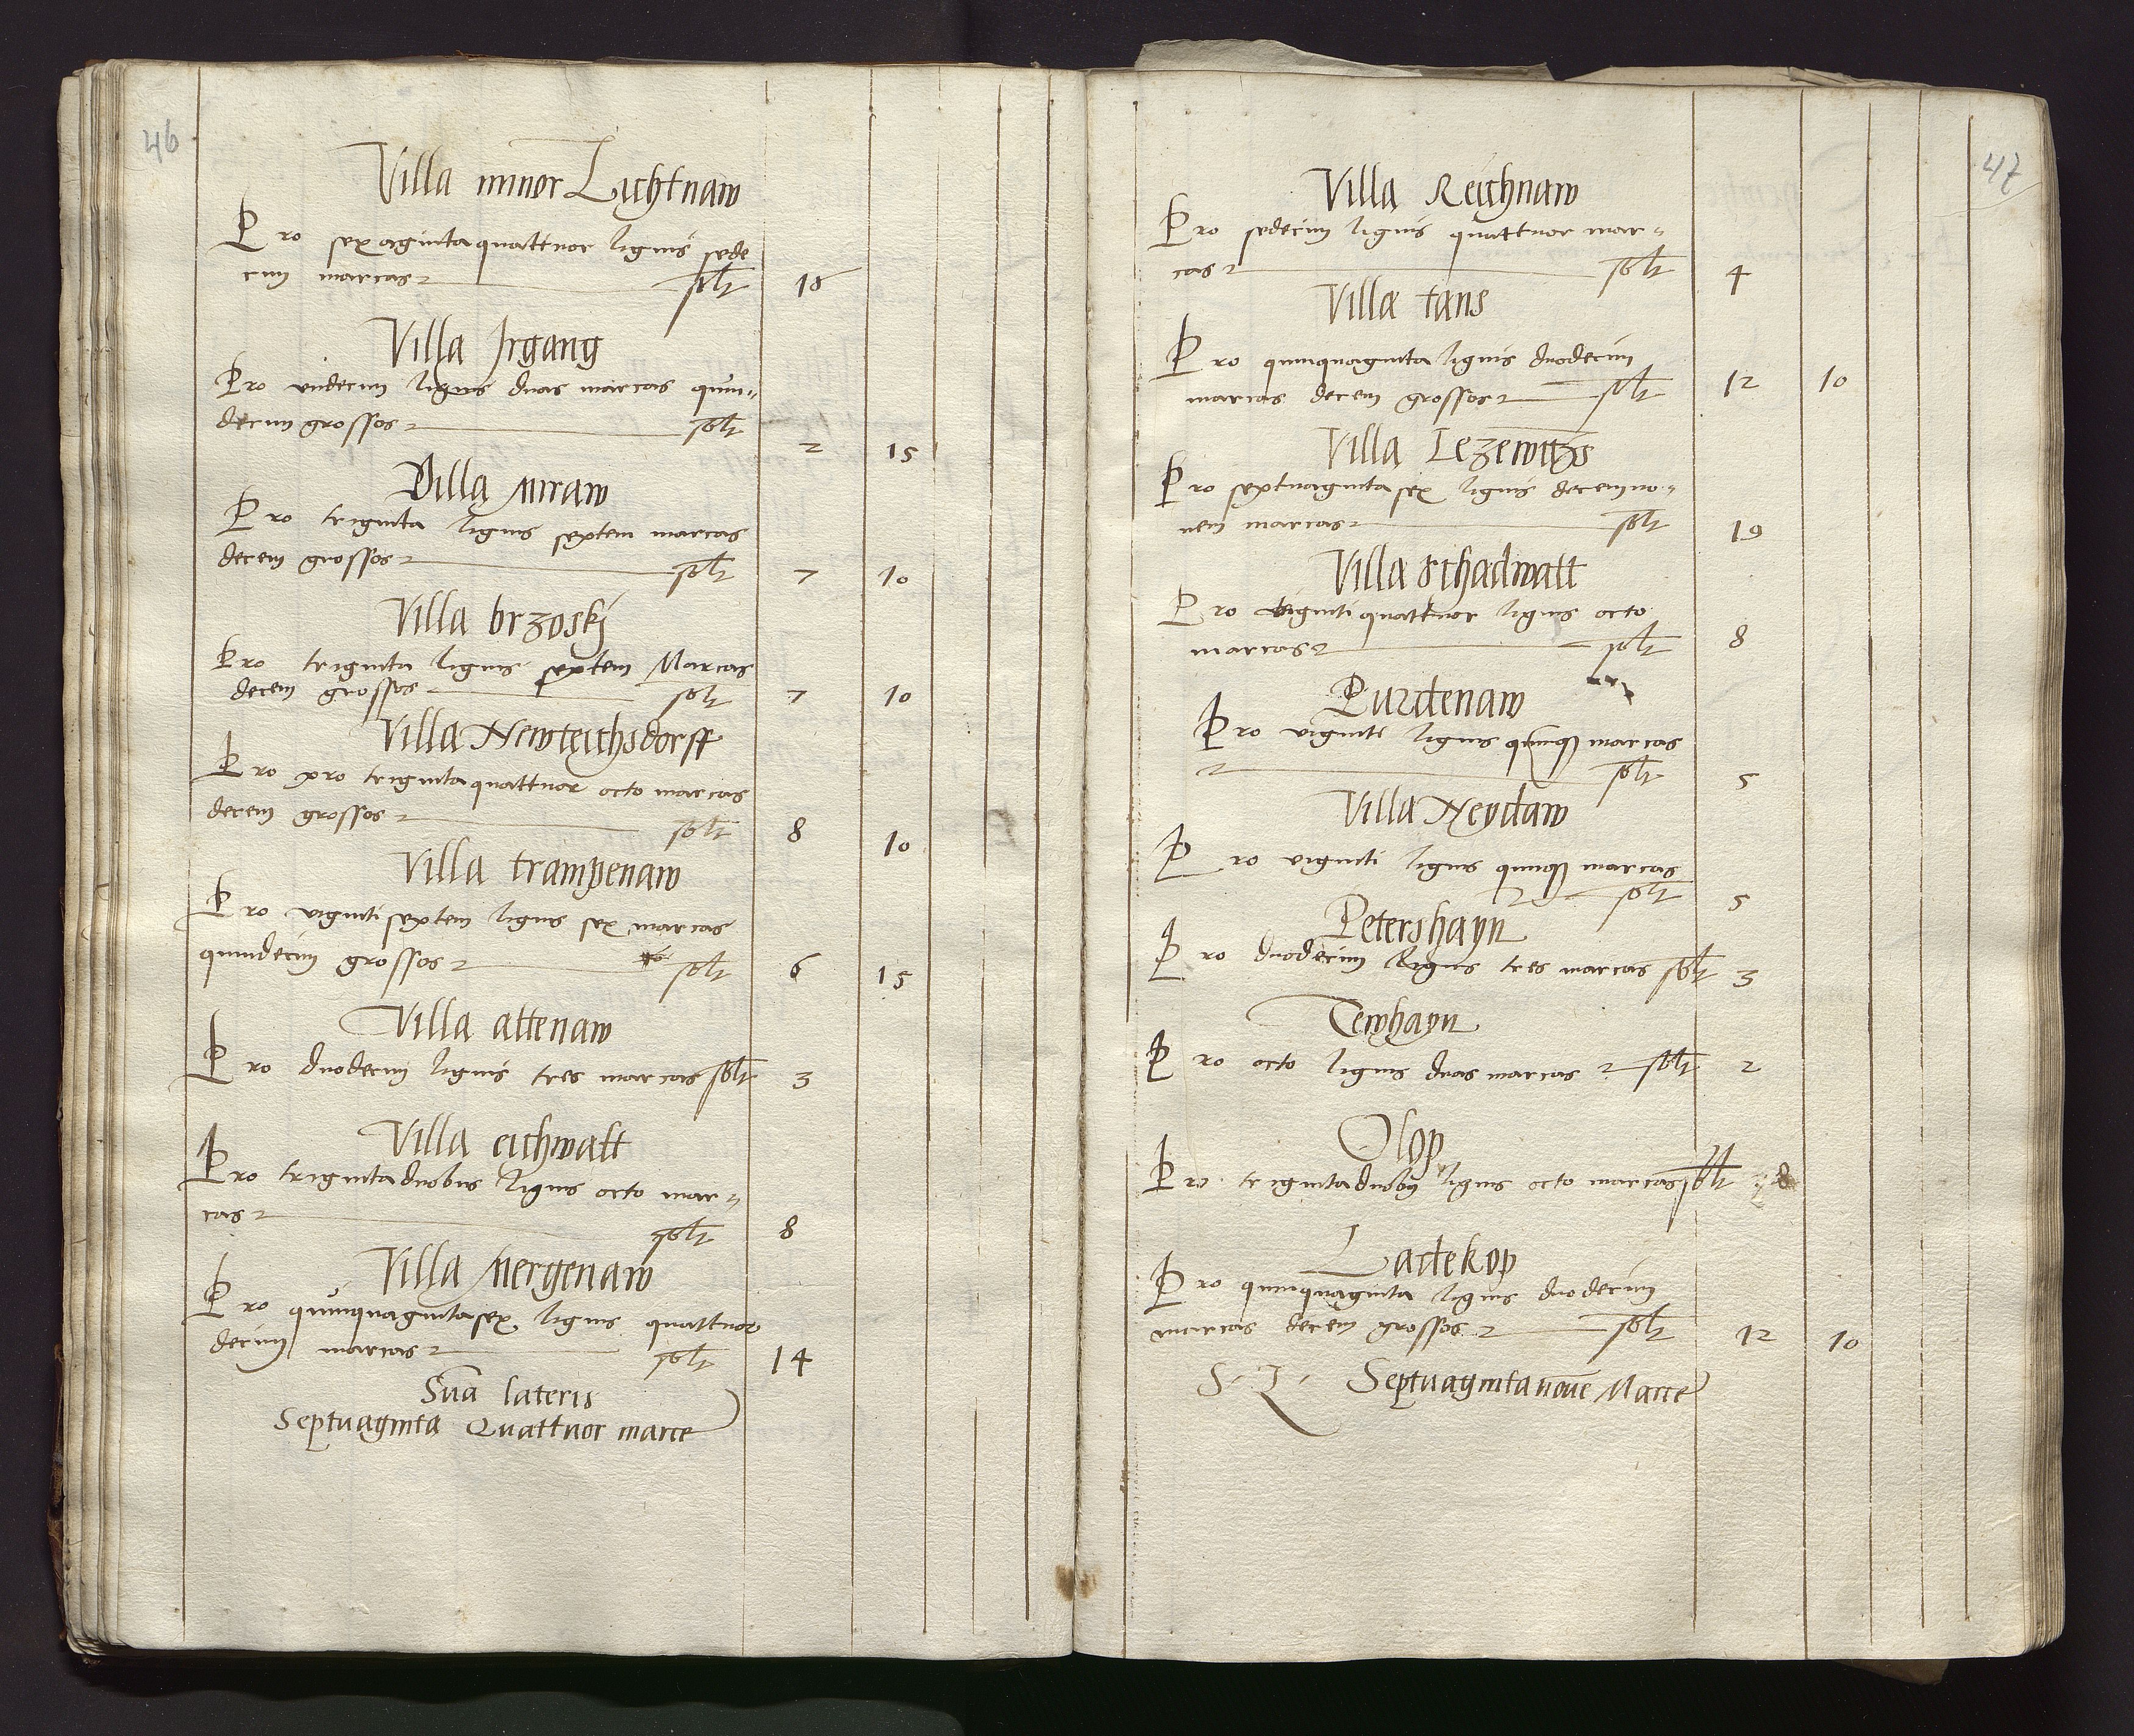 46
Villa minor Lichtnaw
Pro sexagintaquattuor lignis sede
cim marcas solt 16
Villa Jrgang
Pro vndecim lignis duas marcas quin„
decim grossos solt 2 15
Villa miraw
Pro triginta lignis septem marcas
decem grossos solt 7 10
Villa brzoskj
Pro triginta lignis septem Marcas
decem grossos solt 7 10
Villa Newteichsdorff
Pro pro trigintaquattuor octo marcas
decem grossos solt 8 10
Villa trampenaw
Pro vigintiseptem lignis sex marcas
quindecim grossos solt 6 15
Villa altenaw
Pro duodecim lignis tres marcas solt 3
Villa eichwalt
Pro trigintaduobus lignis octo mar„
cas solt 8
Villa Mergenaw
Pro quinquagintasex lignis quattuor
decim marcas solt 14
Sūa lateris
Septuaginta Quattuor marce
47
Villa Reichnaw
Pro sedecim lignis quattuor mar„
cas solt 4
Villa tans
Pro quinquaginta lignis duodecim
marcas decem grossos solt 12 10
Villa Lezewitzs
Pro septuagintasex lignis decemno„
uem marcas solt 19
Villa schadwalt
Pro vigintiquattuor lignis octo
marcas solt 8
Purdenaw
Pro viginti lignis quinqꝫ marcas
solt 5
Villa Neydaw
Pro viginti lignis quinqꝫ marcas
solt 5
Petershayn
Pro duodecim lignis tres marcas solt 3
Tewhayn
Pro octo lignis duas marcas solt 2
Olop
Pro trigintaduobꝰ lignis octo marcas solt 8
Ladekop
Pro quinquaginta lignis duodecim
marcas decem grossos solt 12 10
S. L. Septuagintanouē Marce